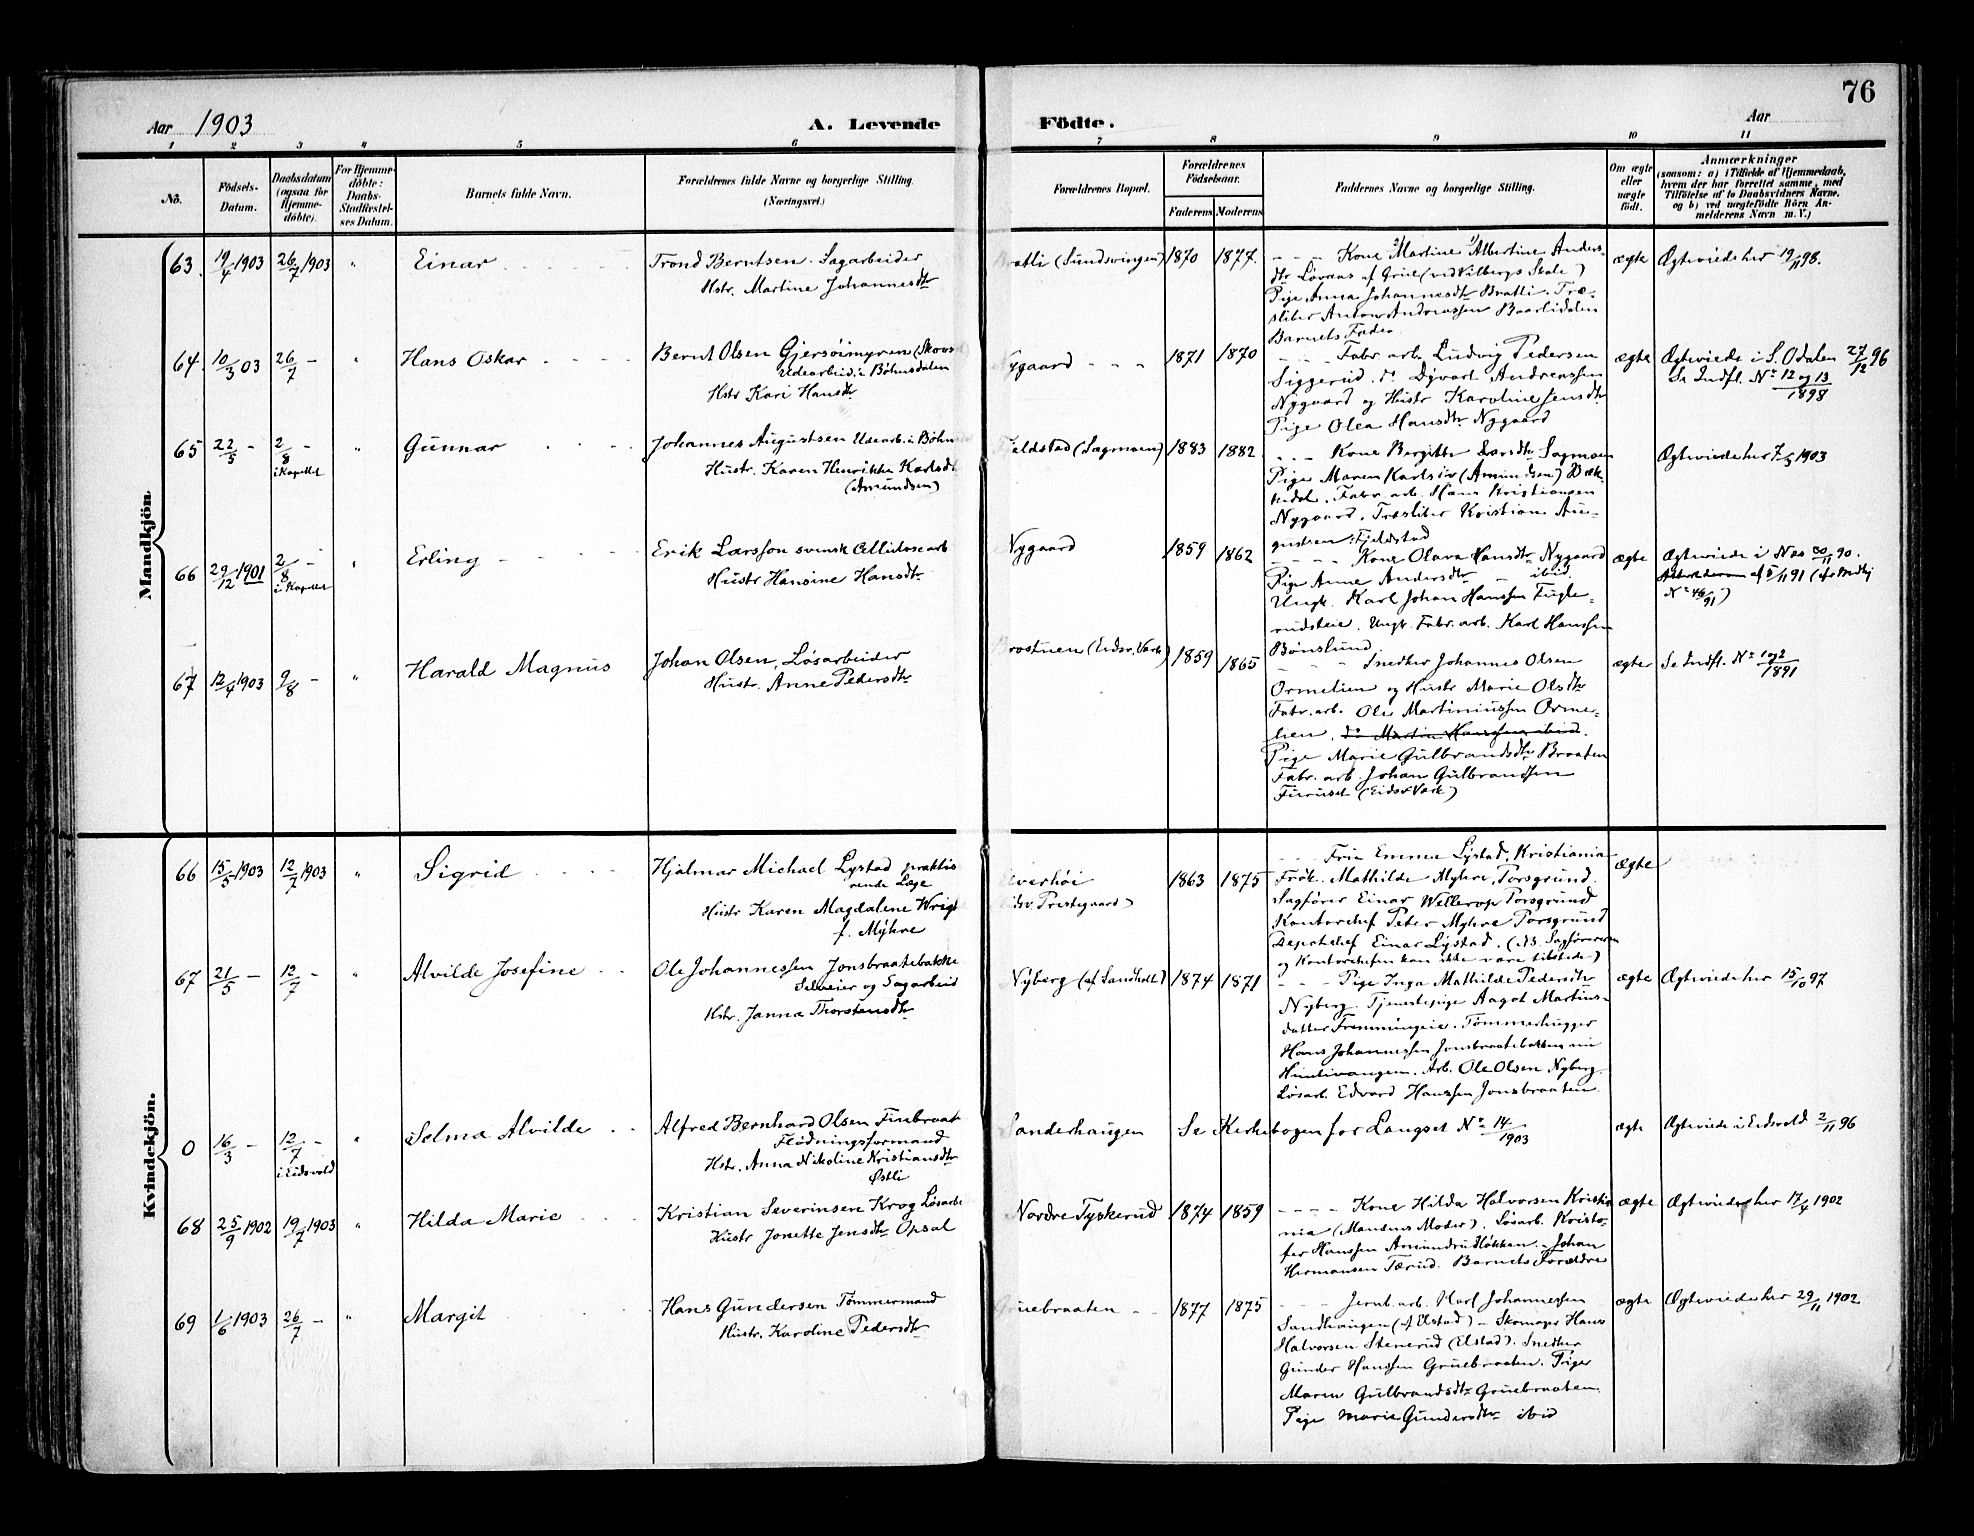 76
Aar 1903
A. Levende Födte.
Aar
1 2 3 4 5 6 7 8 9 10 11
No.
Födsels-Datum.
Daabsdatum (ogsaa for Hjemmedöbte).
For Hjemmedöbte: Daabs-Stadfæstelses Datum.
Barnets fulde Navn.
Forældrenes fulde Navne og borgerlige Stilling.
(Næringsvei.)
Forældrenes Bopæl.
Forældrenes Födselsaar.
Faderens Moderens
Faddernes Navne og borgerlige Stilling.
Om ægte eller uægte födt.
Anmærkninger
(saasom: a) i Tilfælde af Hjemmedaab, hvem der har forrettet samme, med Tilföielse af to Daabsvidners Navne. og b) ved uægtefödte Börn Anmelderens Navn m. V.)
Mandkjön.
63. 19/4 1903 26/7 1903 " Einar
Trond Berntsen. Sagarbeider
Hstr. Martine Johannesdtr
Bratli (Sundsvingen) 1870 1877.
Kone Martine Albertine Anders-
dtr Løvaas af Grue (ved Vilbergs Skole)
Pige Anna Johannesdtr Bratli. Træ-
sliber Anton Andreassen Baarlidalen
Barnets Fader.
ægte Ægteviede her 19/11 98.
64. 10/3 03 26/7 - " Hans Oskar
Bernt Olsen Gjersøimyren (Skovs
Udearbeid. i Bøhnsdalen
Hstr Kari Hansdtr
Nygaard 1871 1870
Fabr. arb. Ludvig Pedersen
Siggerud. do Dyvart Andreassen
Nygaard og Hustr Karoline Jensdtr
Pige Olea Hansdtr Nygaard
ægte Ægteviede i S. Odalen 27/12 96
Se Indfl. No 12 og 13
1898
65 22/5 - 2/8 - " Gunnar
i Kapellet
Johannes Augustsen Udearb. i Bøhn
Hustr. Karen Henrikke Karlsdt
(Amundsen)
Fjeldstad (Sagmoen) 1883 1882
Kone Bergitte Larsdtr Sagmoen
Pige Maren Karlsdtr (Amundsen) Bæk-
kedal. Fabr. arb. Hans Kristiansen
Nygaard. Træsliber Kristian Au-
gustsen Fjeldstad
Ægteviede her 7/3 1903
66 29/12 1901 2/8 - " Erling
i Kapellet
Erik Larsson svensk Cellulosearb
Hustr Hansine Hansdtr
Nygaard 1859 1862
Kone Olava Hansdtr Nygaard
Pige Anne Andersdtr - ibid.
Ungk. Karl Johan Hanssen Fugle-
rudseie. Ungk. Fabr. arb. Karl Hanssen
Bønslund
ægte Ægteviede i Næs 30/11 90.
af 5/11 91 (se Indtj
No 46/91)
67 12/4 1903 9/8 - " Harald Magnus
Johan Olsen, Løsarbeider
Hustr. Anne Pedersdtr
Brostuen (Eidsv. Værk) 1859 1865
Snedker Johannes Olsen
Ormelien og Hustr Marie Olsdtr
Fabr. arb. Ole Martiniussen Orme-
lien. do Martin Hanssen ibid.
Pige Marie Gulbrandsdtr Braaten
Fabr. arb. Johan Gulbrandsen
Furuset (Eidsv Værk)
ægte Se Indfl. No 1 og 2
1891
Kvindekjön.
66 15/5 1903 12/7 1903 " Sigrid
Hjalmar Michael Lystad praktis
rende Læge
Hustr Karen Magdalene Wrigt
f. Myhre
Elverhøi
Eidsv. Prestegaard) 1863 1875
Fru Emma Lystad, Kristiania
Frøk. Mathilde Myhre, Porsgrund.
Sagfører Einar Wellerop Porsgrund
Kontorchef Peter Myhre Porsgrund
Depotchef Einar Lystad. (NB. Sagføreren
og Kontorchefen kan ikke være tilstede)
ægte
67 21/5 - 12/7 - " Alvilde Josefine
Ole Johannessen Jonsbraatebakke
Selveier og Sagarbeid
Hstr. Janna Thorstensdtr
Nyberg (af Sandholt) 1874 1871
Pige Inga Mathilde Pedersdtr
Nyberg. Tjenestepige Aagot Martins-
datter Fremmingeie. Tømmerhugger
Hans Johannessen Jonsbraatebakken nu
Himlivangen. Arb. Ole Olsen Nyberg.
Løsarb. Edvard Hanssen Jonsbraaten
ægte Ægteviede her 15/10 97
0 16/3 - 12/7 - " Selma Alvilde
i Eidsvold
Alfred Bernhard Olsen Finbraat
Flødningsformand
Hstr. Anna Nikoline Kristiansdtr
Østli
Sanderhaugen Se Kirkebogen for Langset No 14/1903
ægte Ægteviede i Eidsvold 2/11 96
68 25/9 1902 19/7 1903 " Hilda Marie
Kristian Severinsen Krog Løsarbe
Hustr Jonette Jensdtr Opsal
Nordre Tyskerud 1874 1859
Kone Hilda Halvorsen Kristia-
nia (Mandens Moder). Løsarb. Kristo-
fer Hanssen Amundrudløkken. Johan
Hermansen Tærud. Barnets Forældre
ægte Ægteviede her 17/4 1902
69 1/6 1903 26/7 - " Margit
Hans Gundersen Tømmermand
Hustr. Karoline Pedersdtr
Gruebraaten 1877 1875
Jernb. arb. Karl Johannessen
Sandhaugen (af Elstad) - Skomager Hans
Halvorsen Stenerud (Elstad). Snedker
Gunder Hanssen Gruebraaten. Pige
Maren Gulbrandsdtr Gruebraaten.
Pige Marie Gundersdtr ibid
ægte Ægteviede her 29/11 1902